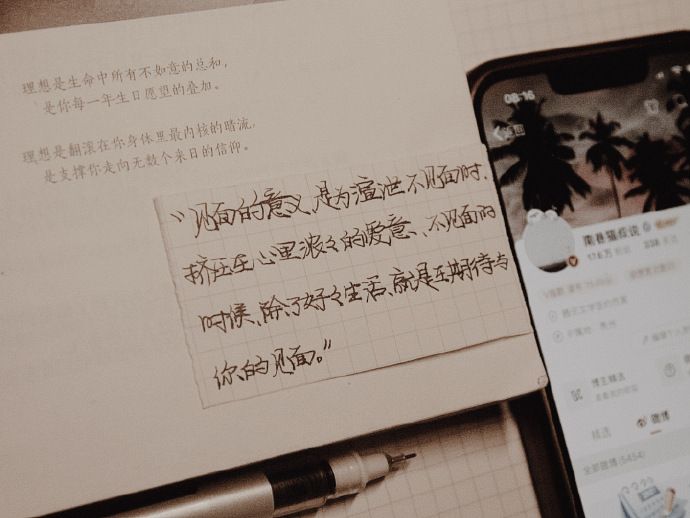 理想是生命中所有不如意的总和，
是你每一年生日愿望的叠加。
理想是翻滚在你身体里最内核的暗流，
是支撑你走向无数个来日的信仰。
“见面的意义、是为渲泄不见面时、
挤压在心里浓々的爱意、、不见面的
时候、除了好々生活、就是在期待与
你的见面。”
08:16
南巷猫叔说
博主精选
精选 微博
全部微博(5454)